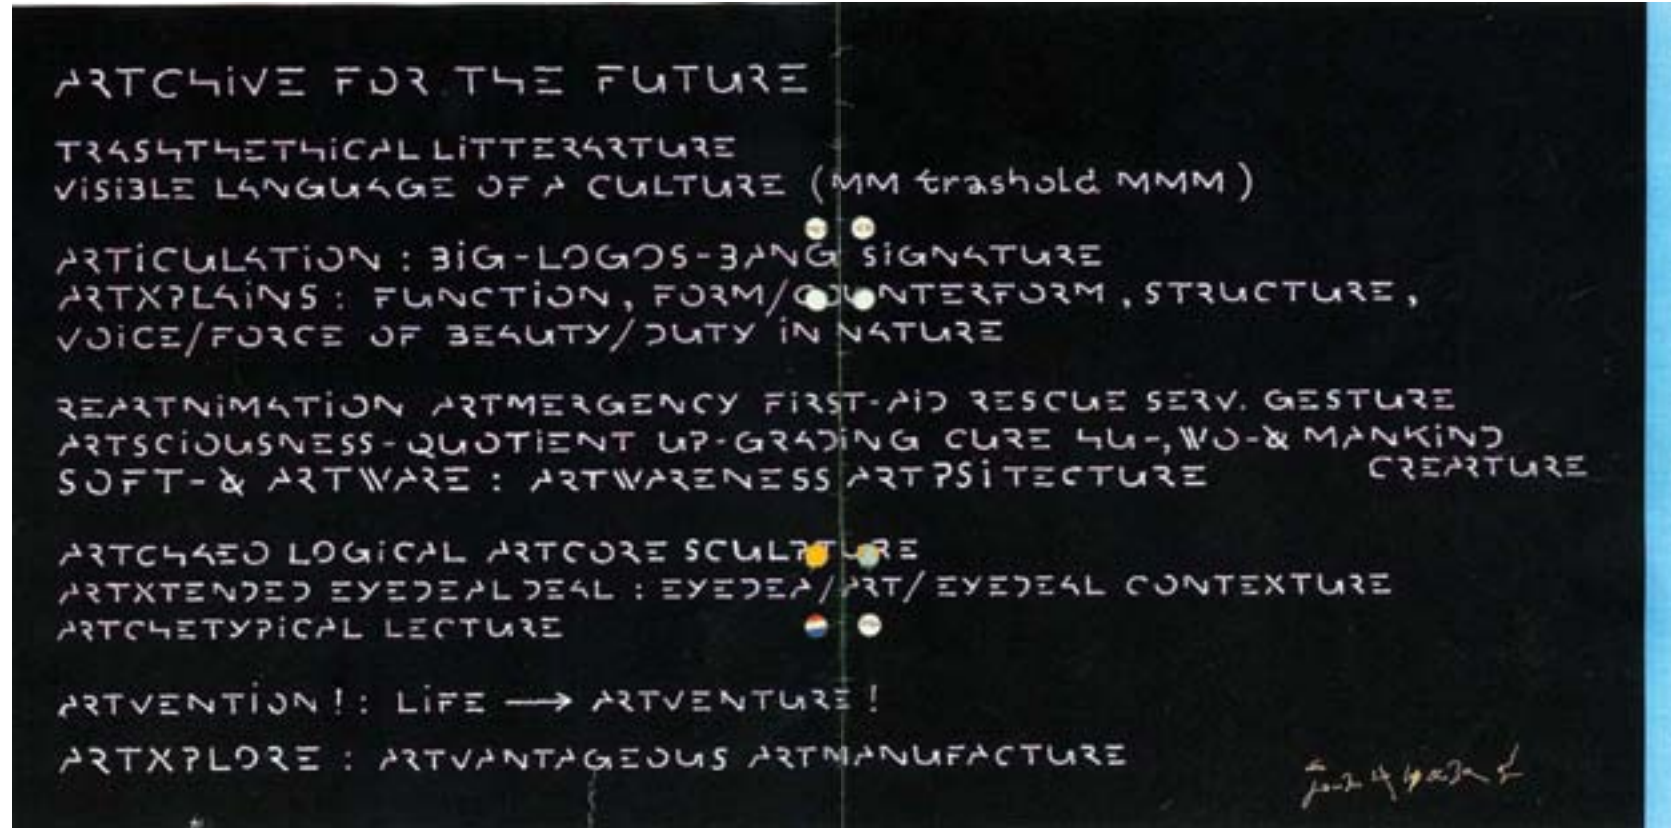 ARTCHiVE FOR THE FUTURE
TRASHTHETHiCAL LiTTERARTURE
ViSiBLE LANGUAGE OF A CULTURE (MM trashold MMM)
ARTiCULATiON : BiG-LOGOS-BANG SiGNATURE
ARTXPLAiNS : FUNCTiON, FORM/COUNTERFORM, STRUCTURE,
VOiCE/FORCE OF BEAUTY/DUTY iN NATURE
REARTNiMATiON ARTMERGENCY FiRST-AiD RESCUE SERV. GESTURE
ARTSCiOUSNESS-QUOTiENT UP-GRADiNG CURE HU-, WO- & MANKiND
SOFT- & ARTWARE : ARTWARENESS ARTPSiTECTURE CREARTURE
ARTCHAEO LOGiCAL ARTCORE SCULPTURE
ARTXTENDED EYEDEAL DEAL : EYEDEA/ART/EYEDEAL CONTEXTURE
ARTCHETYPiCAL LECTURE
ARTVENTiON ! : LiFE → ARTVENTURE !
ARTXPLORE : ARTVANTAGEOUS ARTMANUFACTURE